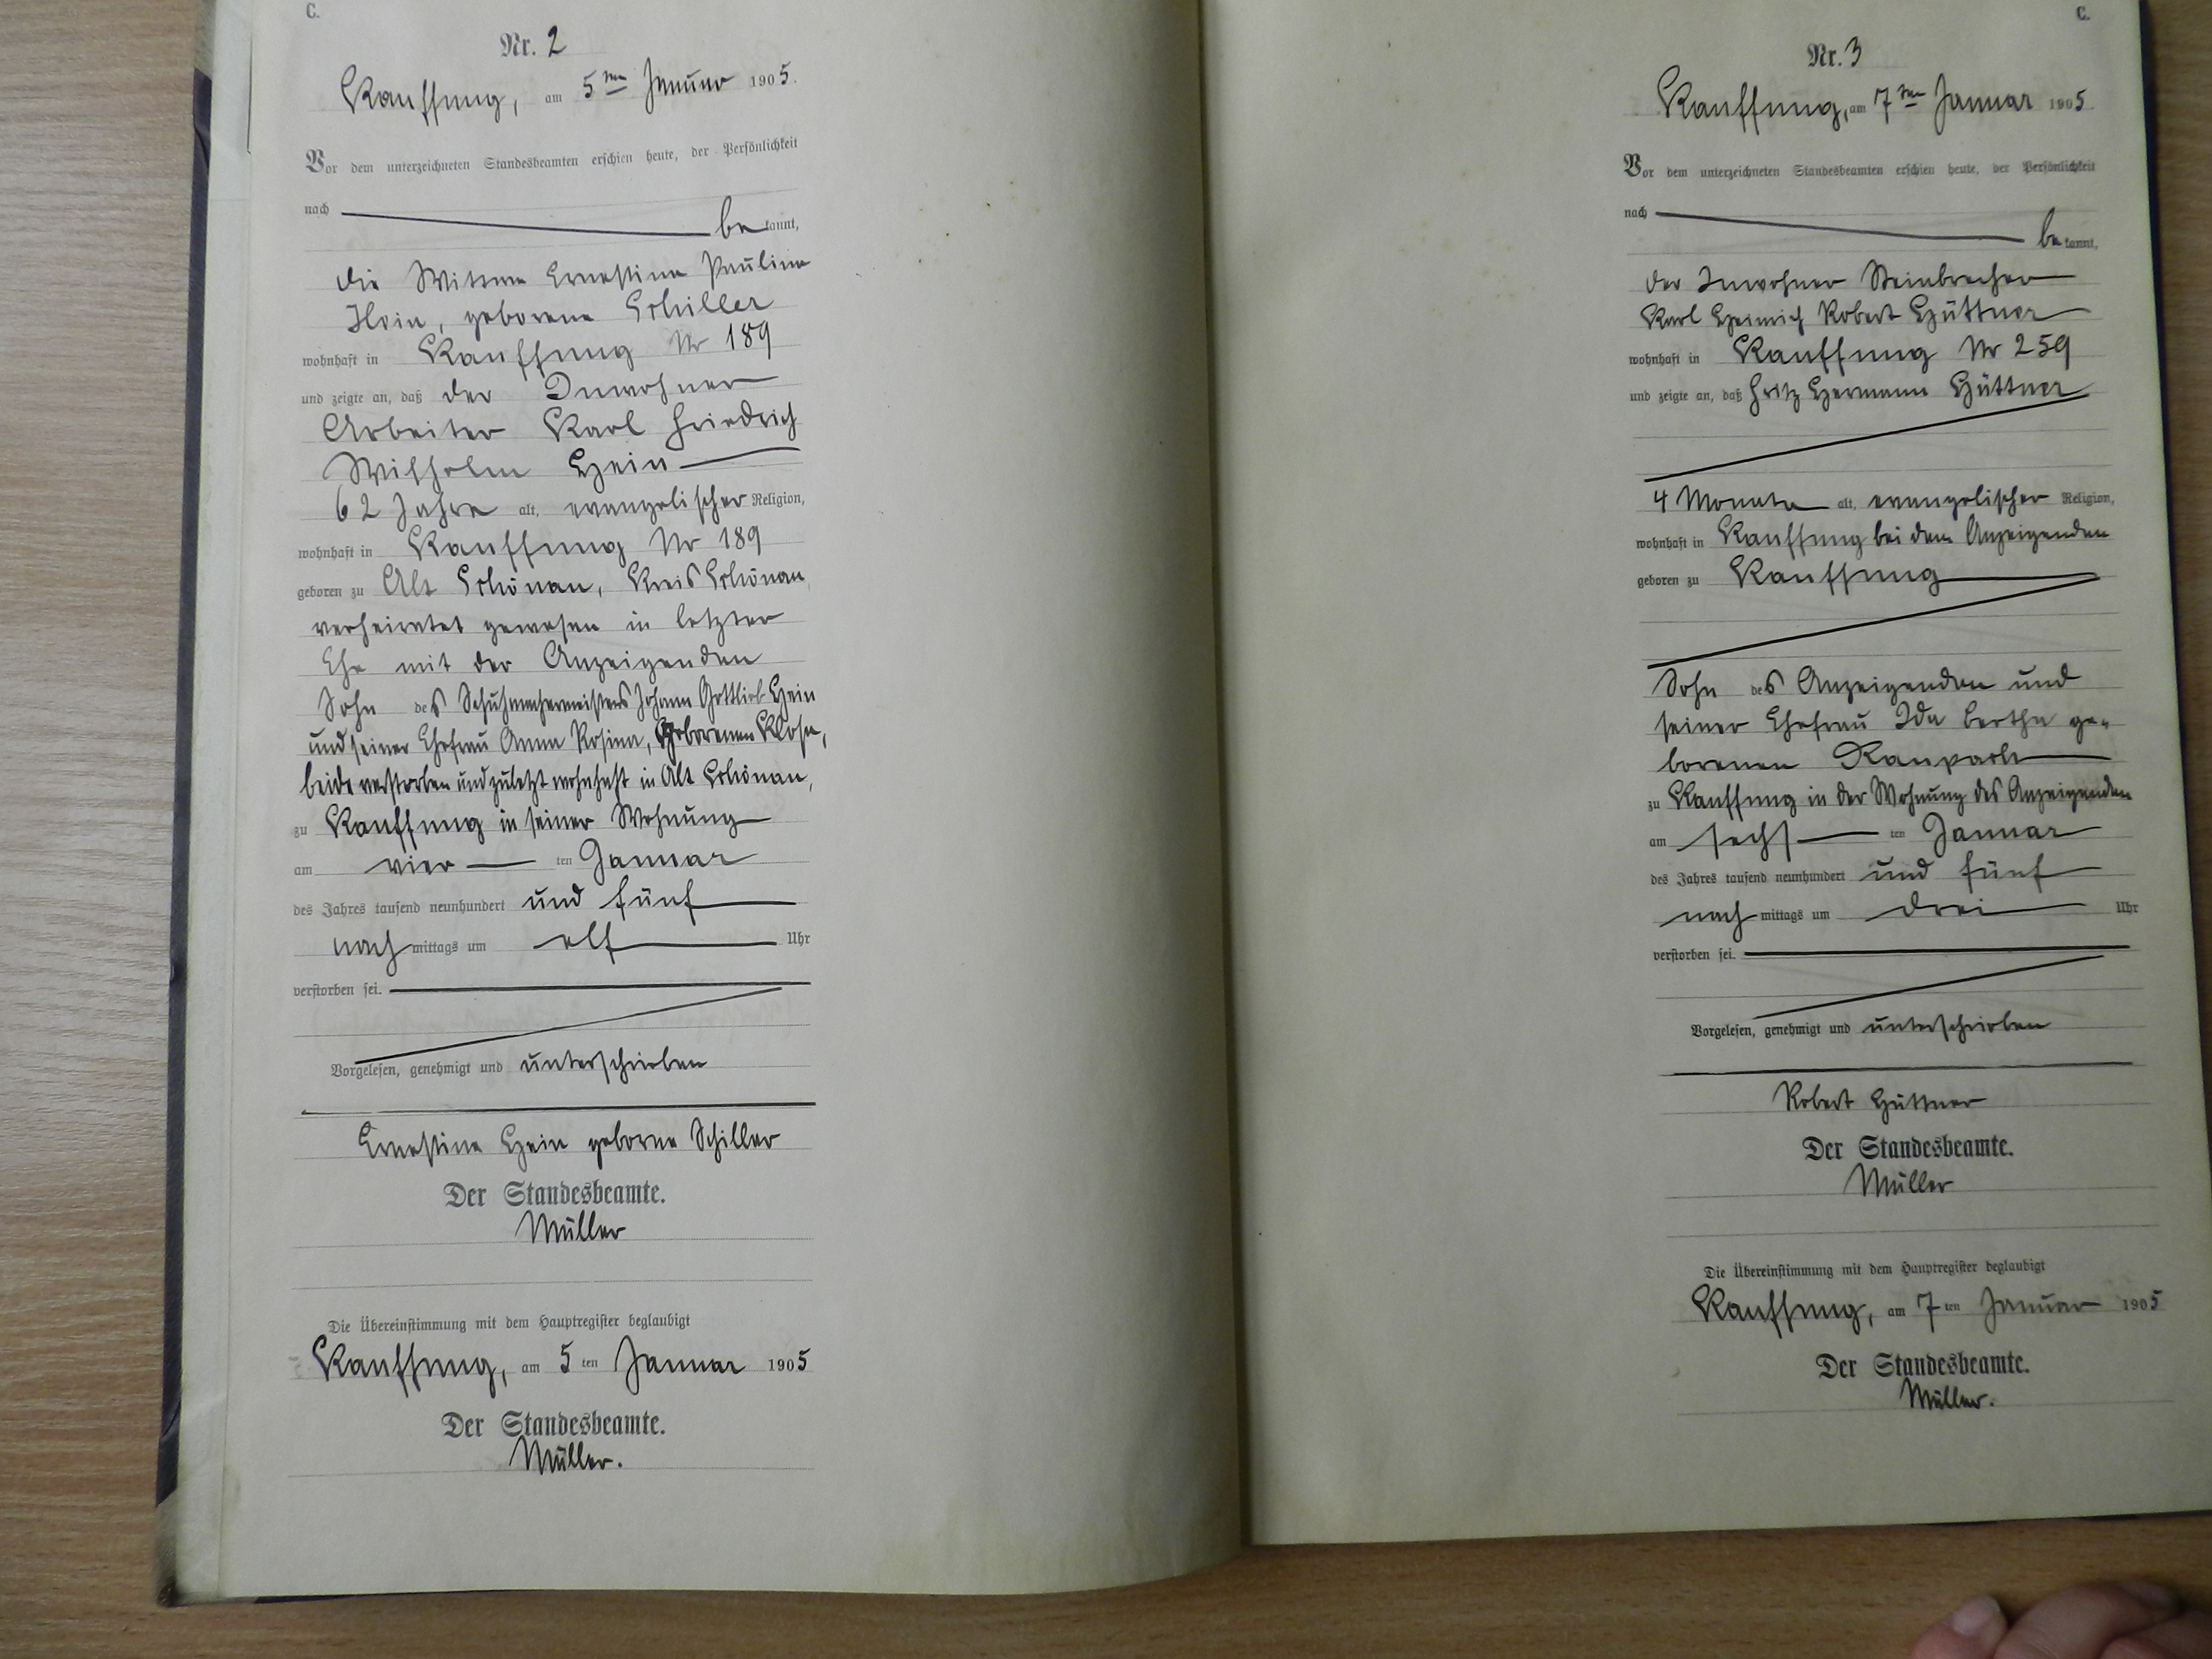 C.
Nr. 2
Kauffung, am 5ten Januar 1905.
Vor dem unterzeichneten Standesbeamten erschien heute, der Persönlichkeit
nach be kannt,
die Witwe Ernestine Pauline
Hein, geborene Schiller
wohnhaft in Kauffung Nr 189
und zeigte an, daß der Inwohner
Arbeiter Karl Friedrich
Wilhelm Hein
62 Jahre alt, evangelischer Religion,
wohnhaft in Kauffung Nr 189
geboren zu Alt Schönau, Kreis Schönau,
verheiratet gewesen in letzter
Ehe mit der Anzeigenden
Sohn des Schuhmachermeisters Johann Gottlieb Hein
und seiner Ehefrau Anna Rosina, geborenen Klose,
beide verstorben und zuletzt wohnhaft in Alt Schönau,
zu Kauffung in seiner Wohnung
am vier ten Januar
des Jahres tausend neunhundert und fünf
nach mittags um elf Uhr
verstorben sei.
Vorgelesen, genehmigt und unterschrieben
Ernestine Hein geborne Schiller
Der Standesbeamte.
Müller
Die Übereinstimmung mit dem Hauptregister beglaubigt
Kauffung, am 5 ten Januar 1905
Der Standesbeamte.
Müller.
C.
Nr. 3
Kauffung, am 7ten Januar 1905.
Vor dem unterzeichneten Standesbeamten erschien heute, der Persönlichkeit
nach be kannt,
der Inwohner Steinbrecher
Karl Heinrich Robert Hüttner
wohnhaft in Kauffung Nr 259
und zeigte an, daß Fritz Hermann Hüttner
4 Monate alt, evangelischer Religion,
wohnhaft in Kauffung bei dem Anzeigenden
geboren zu Kauffung
Sohn des Anzeigenden und
seiner Ehefrau Ida Bertha ge-
borenen
zu Kauffung in der Wohnung des Anzeigenden
am sechs ten Januar
des Jahres tausend neunhundert und fünf
nach mittags um drei Uhr
verstorben sei.
Vorgelesen, genehmigt und unterschrieben
Robert Hüttner
Der Standesbeamte.
Müller
Die Übereinstimmung mit dem Hauptregister beglaubigt
Kauffung, am 7 ten Januar 1905
Der Standesbeamte.
Müller.